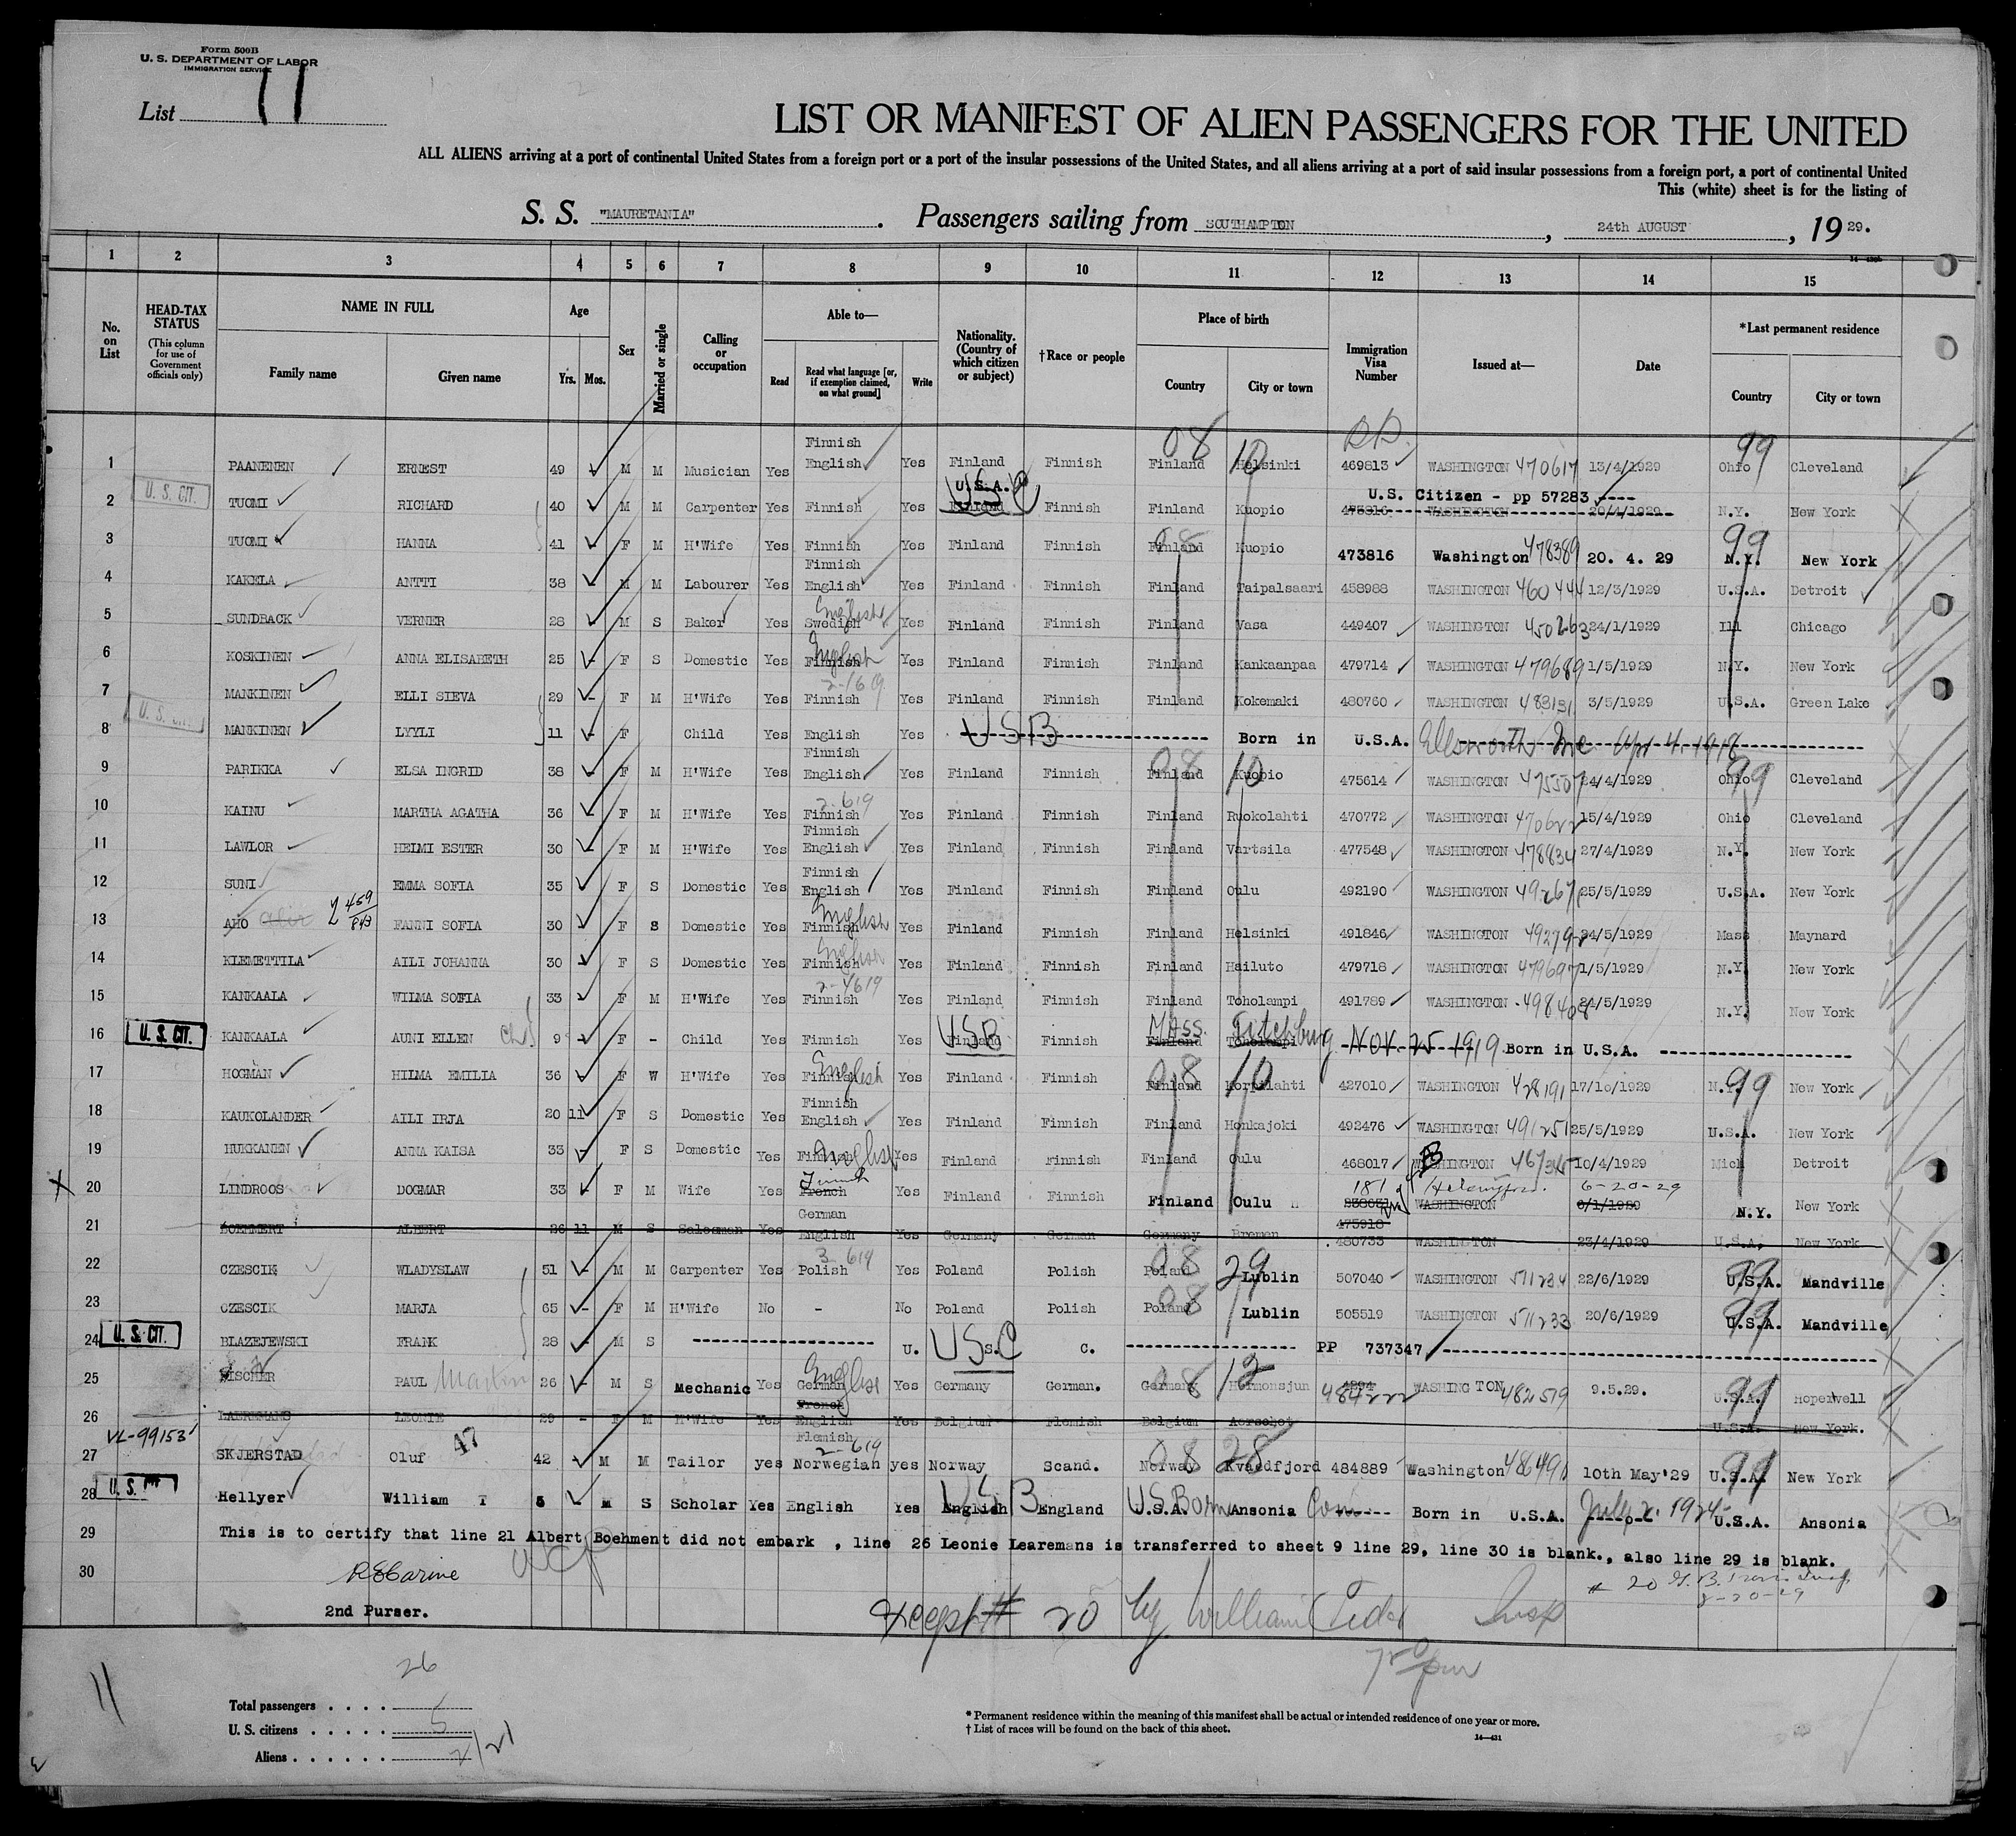 Form 500B
U. S. DEPARTMENT OF LABOR
IMMIGRATION SERVICE
List 11
LIST OR MANIFEST OF ALIEN PASSENGERS FOR THE UNITED
ALL ALIENS arriving at a port of continental United States from a foreign port or a port of the insular possessions of the United States, and all aliens arriving at a port of said insular possessions from a foreign port, a port of continental United
This (white) sheet is for the listing of
S. S. "MAURETANIA". Passengers sailing from SOUTHAMPTON, 24th AUGUST, 19 29.
1 2 3 4 5 6 7 8 9 10 11 12 13 14 15
No. on List
HEAD-TAX STATUS (This column for use of Government officials only)
NAME IN FULL
Family name Given name
Age
Yrs. Mos.
Sex
Married or single
Calling or occupation
Able to—
Read Read what language [or, if exemption claimed, on what ground] Write
Nationality. (Country of which citizen or subject)
†Race or people
Place of birth
Country City or town
Immigration Visa Number
Issued at—
Date
*Last permanent residence
Country City or town
1 PAANENEN ERNEST 49 M M Musician Yes Finnish English Yes Finland Finnish Finland 08 Helsinki 10 469813 WASHINGTON 470617 13/4/1929 Ohio 99 Cleveland
2 U. S. CIT. TUOMI RICHARD 40 M M Carpenter Yes Finnish Yes U.S.A. Finland USC Finnish Finland Kuopio U.S. Citizen - pp 57283 ---- 473816 WASHINGTON 20/4/1929 N.Y. New York
3 TUOMI HANNA 41 F M H'Wife Yes Finnish Yes Finland Finnish Finland 08 Kuopio 473816 Washington 478389 20. 4. 29 N.Y. 99 New York
4 KAKELA ANTTI 38 M M Labourer Yes Finnish English Yes Finland Finnish Finland Taipalsaari 458988 WASHINGTON 460444 12/3/1929 U.S.A. Detroit
5 SUNDBACK VERNER 28 M S Baker Yes English Swedish Yes Finland Finnish Finland Vasa 449407 WASHINGTON 450263 24/1/1929 Ill Chicago
6 KOSKINEN ANNA ELISABETH 25 F S Domestic Yes English Finnish Yes Finland Finnish Finland Kankaanpaa 479714 WASHINGTON 479689 1/5/1929 N.Y. New York
7 MANKINEN ELLI SIEVA 29 F M H'Wife Yes 2-1619 Finnish Yes Finland Finnish Finland Kokemaki 480760 WASHINGTON 483131 3/5/1929 U.S.A. Green Lake
8 U. S. CIT. MANKINEN LYYLI 11 F Child Yes English Yes USB Born in U.S.A. Ellsworth Me Apr 4. 1918
9 PARIKKA ELSA INGRID 38 F M H'Wife Yes Finnish English Yes Finland Finnish Finland 08 Kuopio 10 475614 WASHINGTON 475507 24/4/1929 Ohio 99 Cleveland
10 KAINU MARTHA AGATHA 36 F M H'Wife Yes 2-619 Finnish Yes Finland Finnish Finland Ruokolahti 470772 WASHINGTON 470622 15/4/1929 Ohio Cleveland
11 LAWLOR HEIMI ESTER 30 F M H'Wife Yes Finnish English Yes Finland Finnish Finland Vartsila 477548 WASHINGTON 478834 27/4/1929 N.Y. New York
12 SUNI EMMA SOFIA 35 F S Domestic Yes Finnish English Yes Finland Finnish Finland Oulu 492190 WASHINGTON 49267 25/5/1929 U.S.A. New York
13 AHO 2 459/843 FANNI SOFIA 30 F S Domestic Yes English Finnish Yes Finland Finnish Finland Helsinki 491846 WASHINGTON 49279 24/5/1929 Mass Maynard
14 KLEMETTILA AILI JOHANNA 30 F S Domestic Yes English Finnish Yes Finland Finnish Finland Hailuto 479718 WASHINGTON 479697 1/5/1929 N.Y. New York
15 KANKAALA WILMA SOFIA 33 F M H'Wife Yes 2-4619 Finnish Yes Finland Finnish Finland Toholampi 491789 WASHINGTON 498408 24/5/1929 N.Y. New York
16 U. S. CIT. KANKAALA AUNI ELLEN Ch 9 F - Child Yes Finnish Yes USB Finland Finnish Mass. Finland Fitchburg Toholampi Nov. 25 1919 Born in U.S.A.
17 HOGMAN HILMA EMILIA 36 F W H'Wife Yes English Finnish Yes Finland Finnish Finland 08 Korpilahti 10 427010 WASHINGTON 428191 17/10/1929 N.Y. 99 New York
18 KAUKOLANDER AILI IRJA 20 11 F S Domestic Yes Finnish English Yes Finland Finnish Finland Honkajoki 492476 WASHINGTON 491251 25/5/1929 U.S.A. New York
19 HUKKANEN ANNA KAISA 33 F S Domestic Yes English Finnish Yes Finland Finnish Finland Oulu 468017 WASHINGTON 467345 10/4/1929 Mich Detroit
20 LINDROOS DOGMAR 33 F M Wife Yes Finnish French Yes Finland Finnish Finland Oulu 181 WASHINGTON 6-20-29 6/1/1929 N.Y. New York
21 BOEHMERT ALBERT 26 11 M S Salesman Yes German English Yes Germany German Germany Bremen 475918 480733 WASHINGTON 23/4/1929 U.S.A. New York
22 CZESCIK WLADYSLAW 51 M M Carpenter Yes 3-619 Polish Yes Poland Polish Poland 08 29 Lublin 507040 WASHINGTON 511234 22/6/1929 U.S.A. 99 Mandville
23 CZESCIK MARJA 65 F M H'Wife No - No Poland Polish Poland 08 Lublin 505519 WASHINGTON 511233 20/6/1929 U.S.A. 99 Mandville
24 U. S. CIT. BLAZEJEWSKI FRANK 28 M S U. S. C. USC PP 737347
25 FISCHER PAUL Martin 26 M S Mechanic Yes English German Yes Germany German. Germany 08 12 WASHINGTON 482579 9.5.29. U.S.A. 99 Hopewell
26 LAEREMANS LEONIE 29 - F M H'Wife Yes French English Flemish Yes Belgium Flemish Belgium Aerschot U.S.A. New York.
VL-99153
27 SKJERSTAD Oluf 47 42 M M Tailor yes 2-619 Norwegian yes Norway Scand. Norway 08 Kvaedfjord 28 484889 Washington 10th May'29 U.S.A. 99 New York
28 U. S. CIT. Hellyer William T 5 M S Scholar Yes English Yes English USB England U.S.A. US Born Ansonia Conn Born in U.S.A. July 2. 1924 U.S.A. Ansonia
29 This is to certify that line 21 Albert Boehment did not embark , line 26 Leonie Learemans is transferred to sheet 9 line 29, line 30 is blank., also line 29 is blank.
30
2nd Purser.
Except # 20 by William Insp
11
26
Total passengers . . . .
U. S. citizens . . . . . 5
Aliens . . . . . . 21
* Permanent residence within the meaning of this manifest shall be actual or intended residence of one year or more.
† List of races will be found on the back of this sheet.
14—431